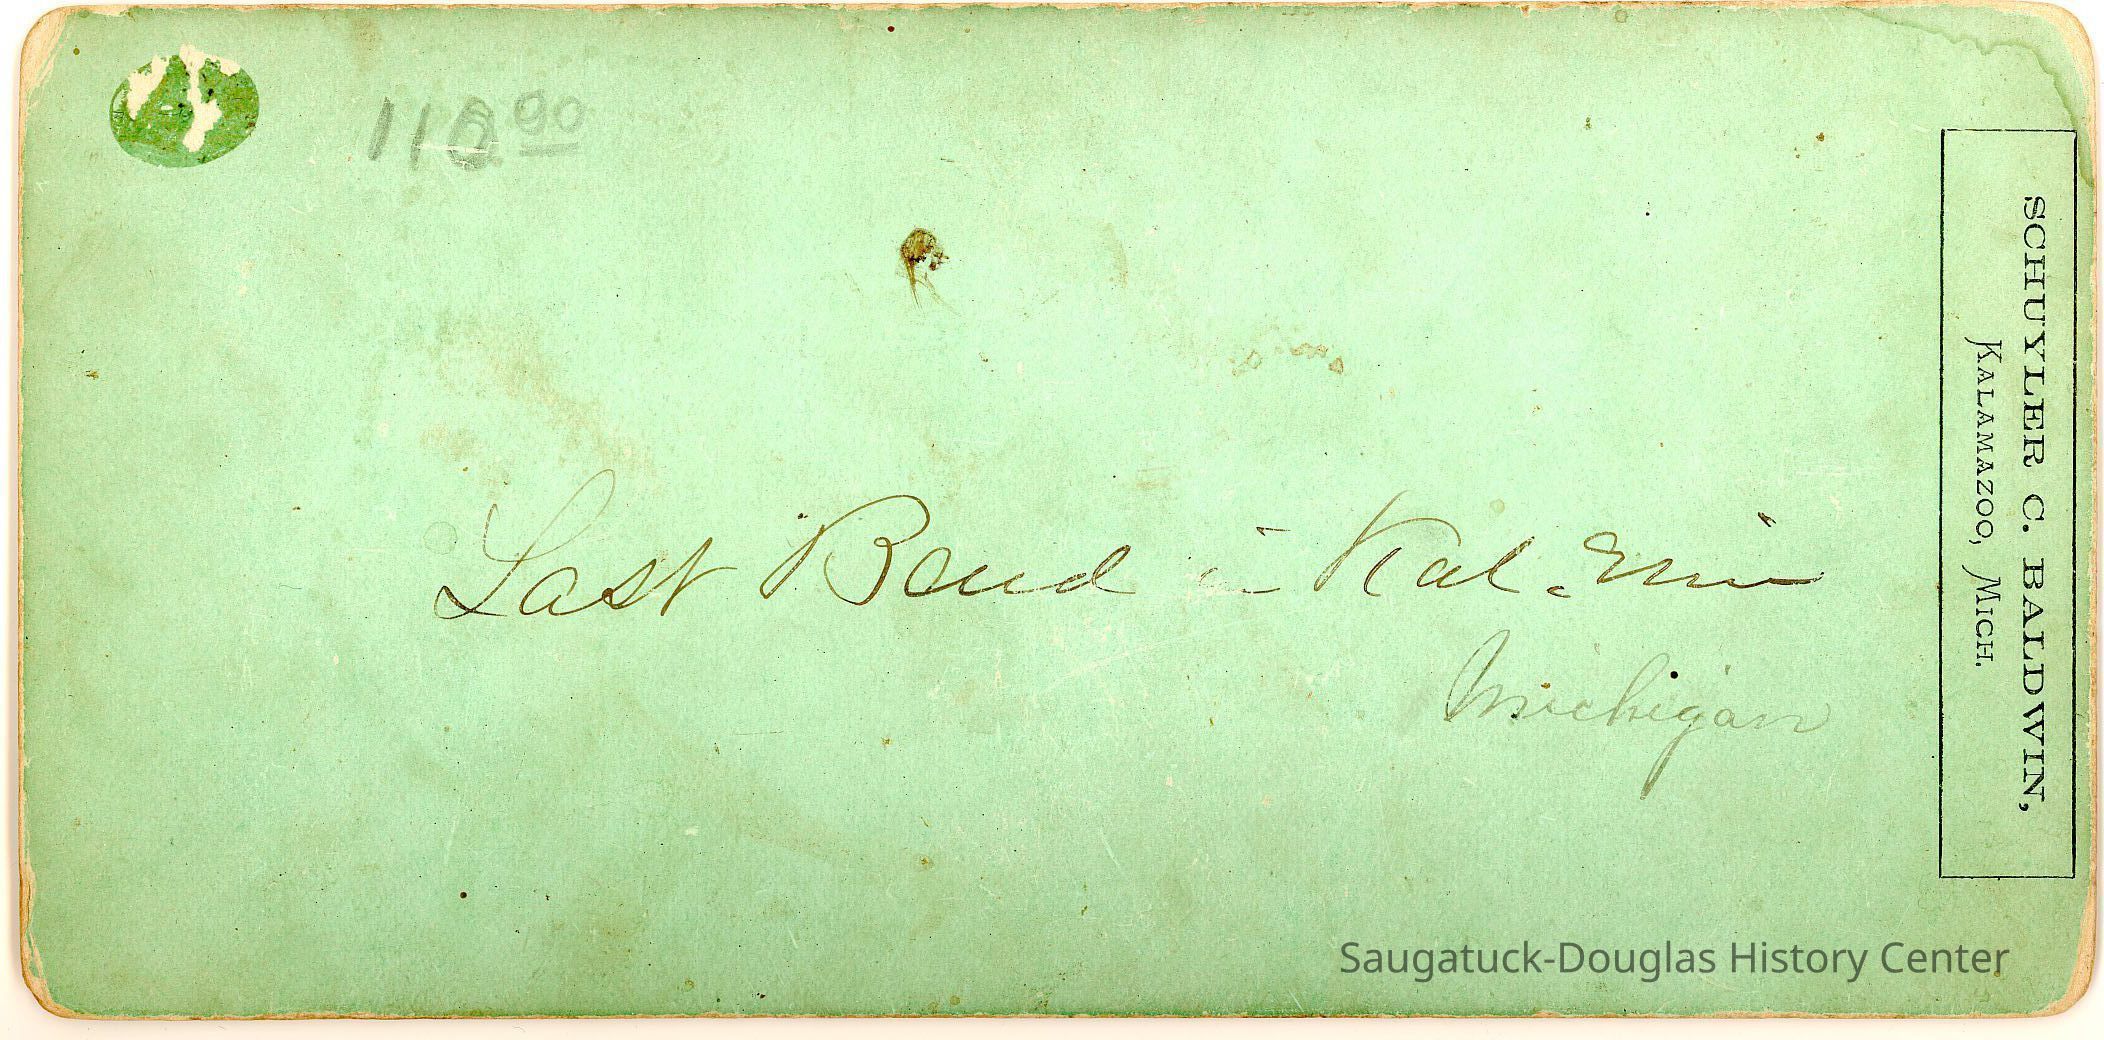 Last Bend in Kal. Riv
Michigan
SCHUYLER C. BALDWIN,
KALAMAZOO, MICH.
Saugatuck-Douglas History Center